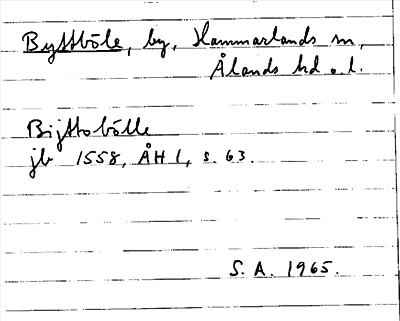 Byttböle, by, Hammarlands sn,
Ålands hd o. l.
Bijttobölle
jb 1558, ÅH 1, s. 63.
S. A. 1965.